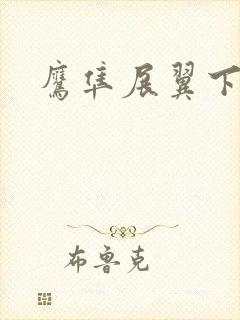 鹰隼展翼下
布鲁克